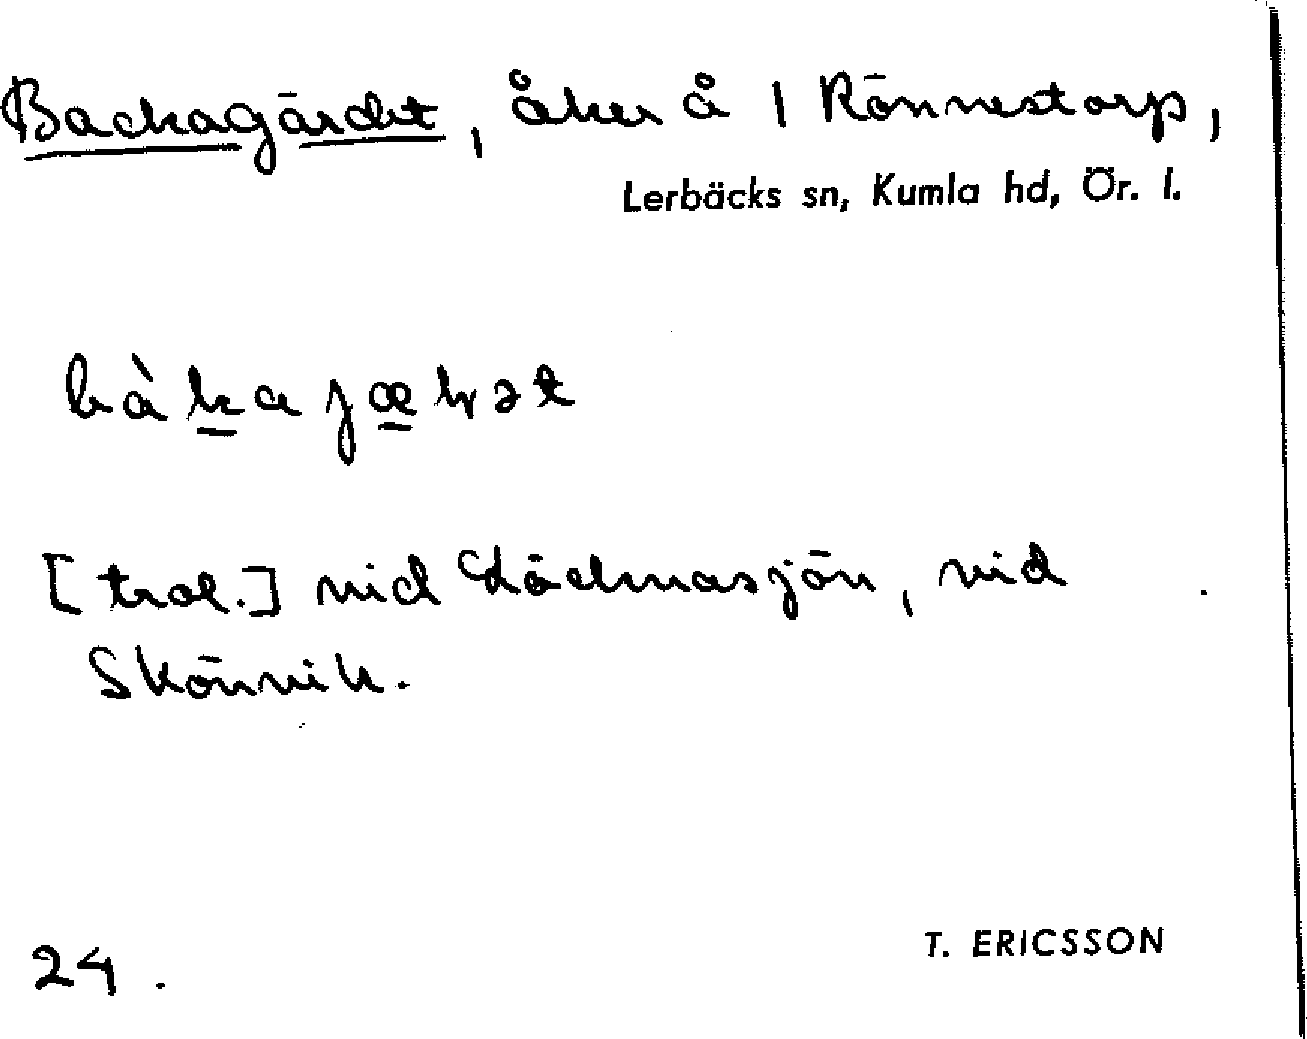 Backagärdet, åker å 1 Rönnestorp,
Lerbäcks sn, Kumla hd, Ör. l.
[trol.] vid sjön, vid
Skönvik.
24.
T. ERICSSON